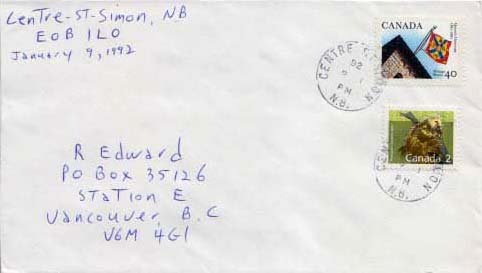 Centre-St-Simon, NB
E0B 1L0
January 9, 1992
CANADA
40
CENTRE-ST SIMON
92
9 1
PM
N.B.
Canada 2
PM
N.B.
R Edward
PO Box 35126
Station E
Vancouver, B.C
V6M 4G1